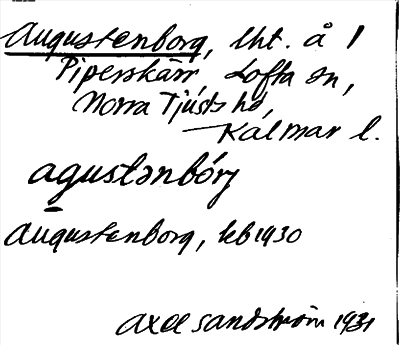 Augustenborg, lht. å 1
Piperskärr, Lofta sn,
Norra Tjusts hd,
Kalmar l.
agustənbórj
Augustenborg, kb 1930
Axel Sandström 1931